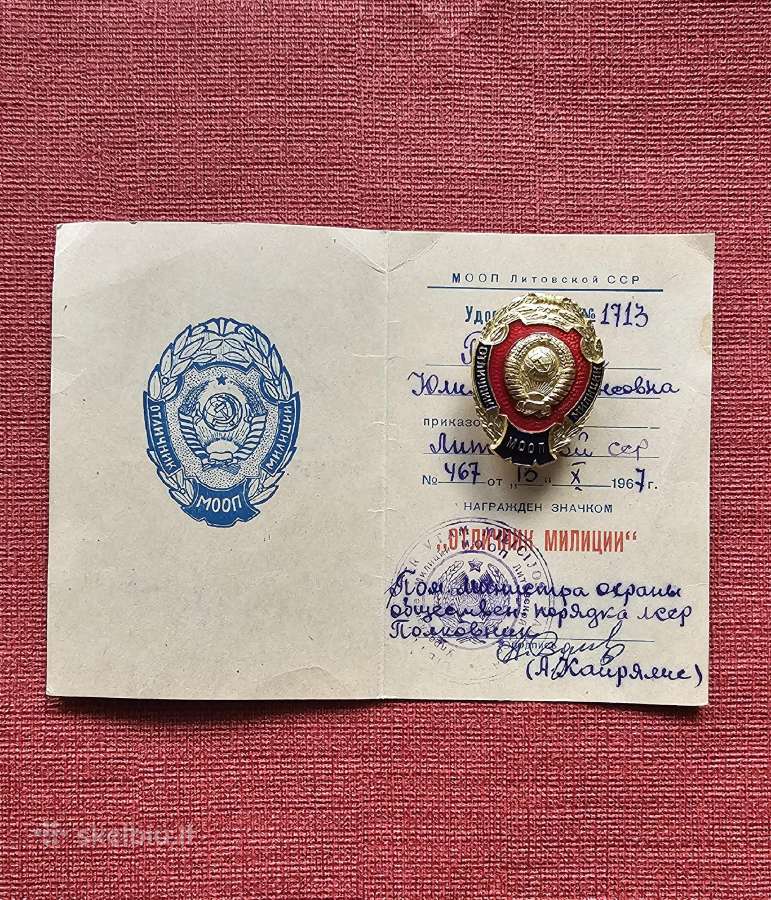 ОТЛИЧНИК МИЛИЦИИ
МООП
МООП Литовской ССР
№ 1713
ОТЛИЧНИК
МООП
приказо
Лит ой сср
№ 467 от „15" X 1967 г.
НАГРАЖДЕН ЗНАЧКОМ
„ОТЛИЧНИК МИЛИЦИИ"
Пом министра охраны
обществен порядка лсср
Полковник
(А.Кайрялис)
skelbiu.lt